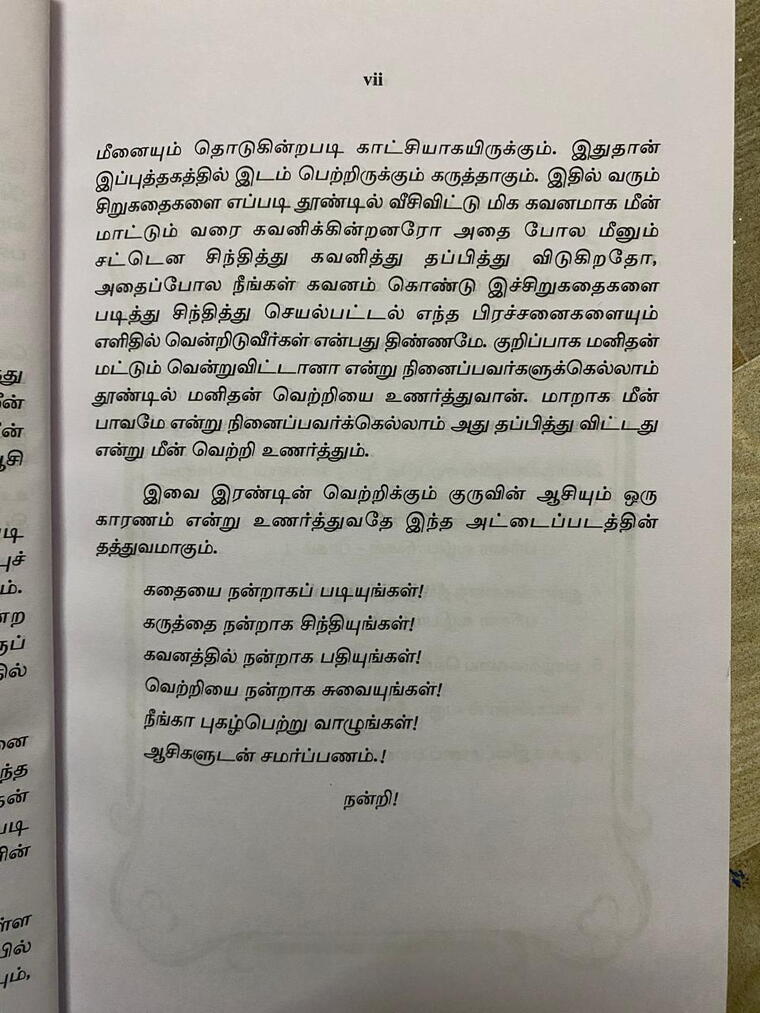 vii
மீனையும் தொடுகின்றபடி காட்சியாகயிருக்கும். இதுதான்
இப்புத்தகத்தில் இடம் பெற்றிருக்கும் கருத்தாகும். இதில் வரும்
சிறுகதைகளை எப்படி தூண்டில் வீசிவிட்டு மிக கவனமாக மீன்
மாட்டும் வரை கவனிக்கின்றனரோ அதை போல மீனும்
சட்டென சிந்தித்து கவனித்து தப்பித்து விடுகிறதோ,
அதைப்போல நீங்கள் கவனம் கொண்டு இச்சிறுகதைகளை
படித்து சிந்தித்து செயல்பட்டல் எந்த பிரச்சனைகளையும்
எளிதில் வென்றிடுவீர்கள் என்பது திண்ணமே. குறிப்பாக மனிதன்
மட்டும் வென்றுவிட்டானா என்று நினைப்பவர்களுக்கெல்லாம்
தூண்டில் மனிதன் வெற்றியை உணர்த்துவான். மாறாக மீன்
பாவமே என்று நினைப்பவர்க்கெல்லாம் அது தப்பித்து விட்டது
என்று மீன் வெற்றி உணர்த்தும்.
இவை இரண்டின் வெற்றிக்கும் குருவின் ஆசியும் ஒரு
காரணம் என்று உணர்த்துவதே இந்த அட்டைப்படத்தின்
தத்துவமாகும்.
கதையை நன்றாகப் படியுங்கள்!
கருத்தை நன்றாக சிந்தியுங்கள்!
கவனத்தில் நன்றாக பதியுங்கள்!
வெற்றியை நன்றாக சுவையுங்கள்!
நீங்கா புகழ்பெற்று வாழுங்கள்!
ஆசிகளுடன் சமர்ப்பணம்.!
நன்றி!